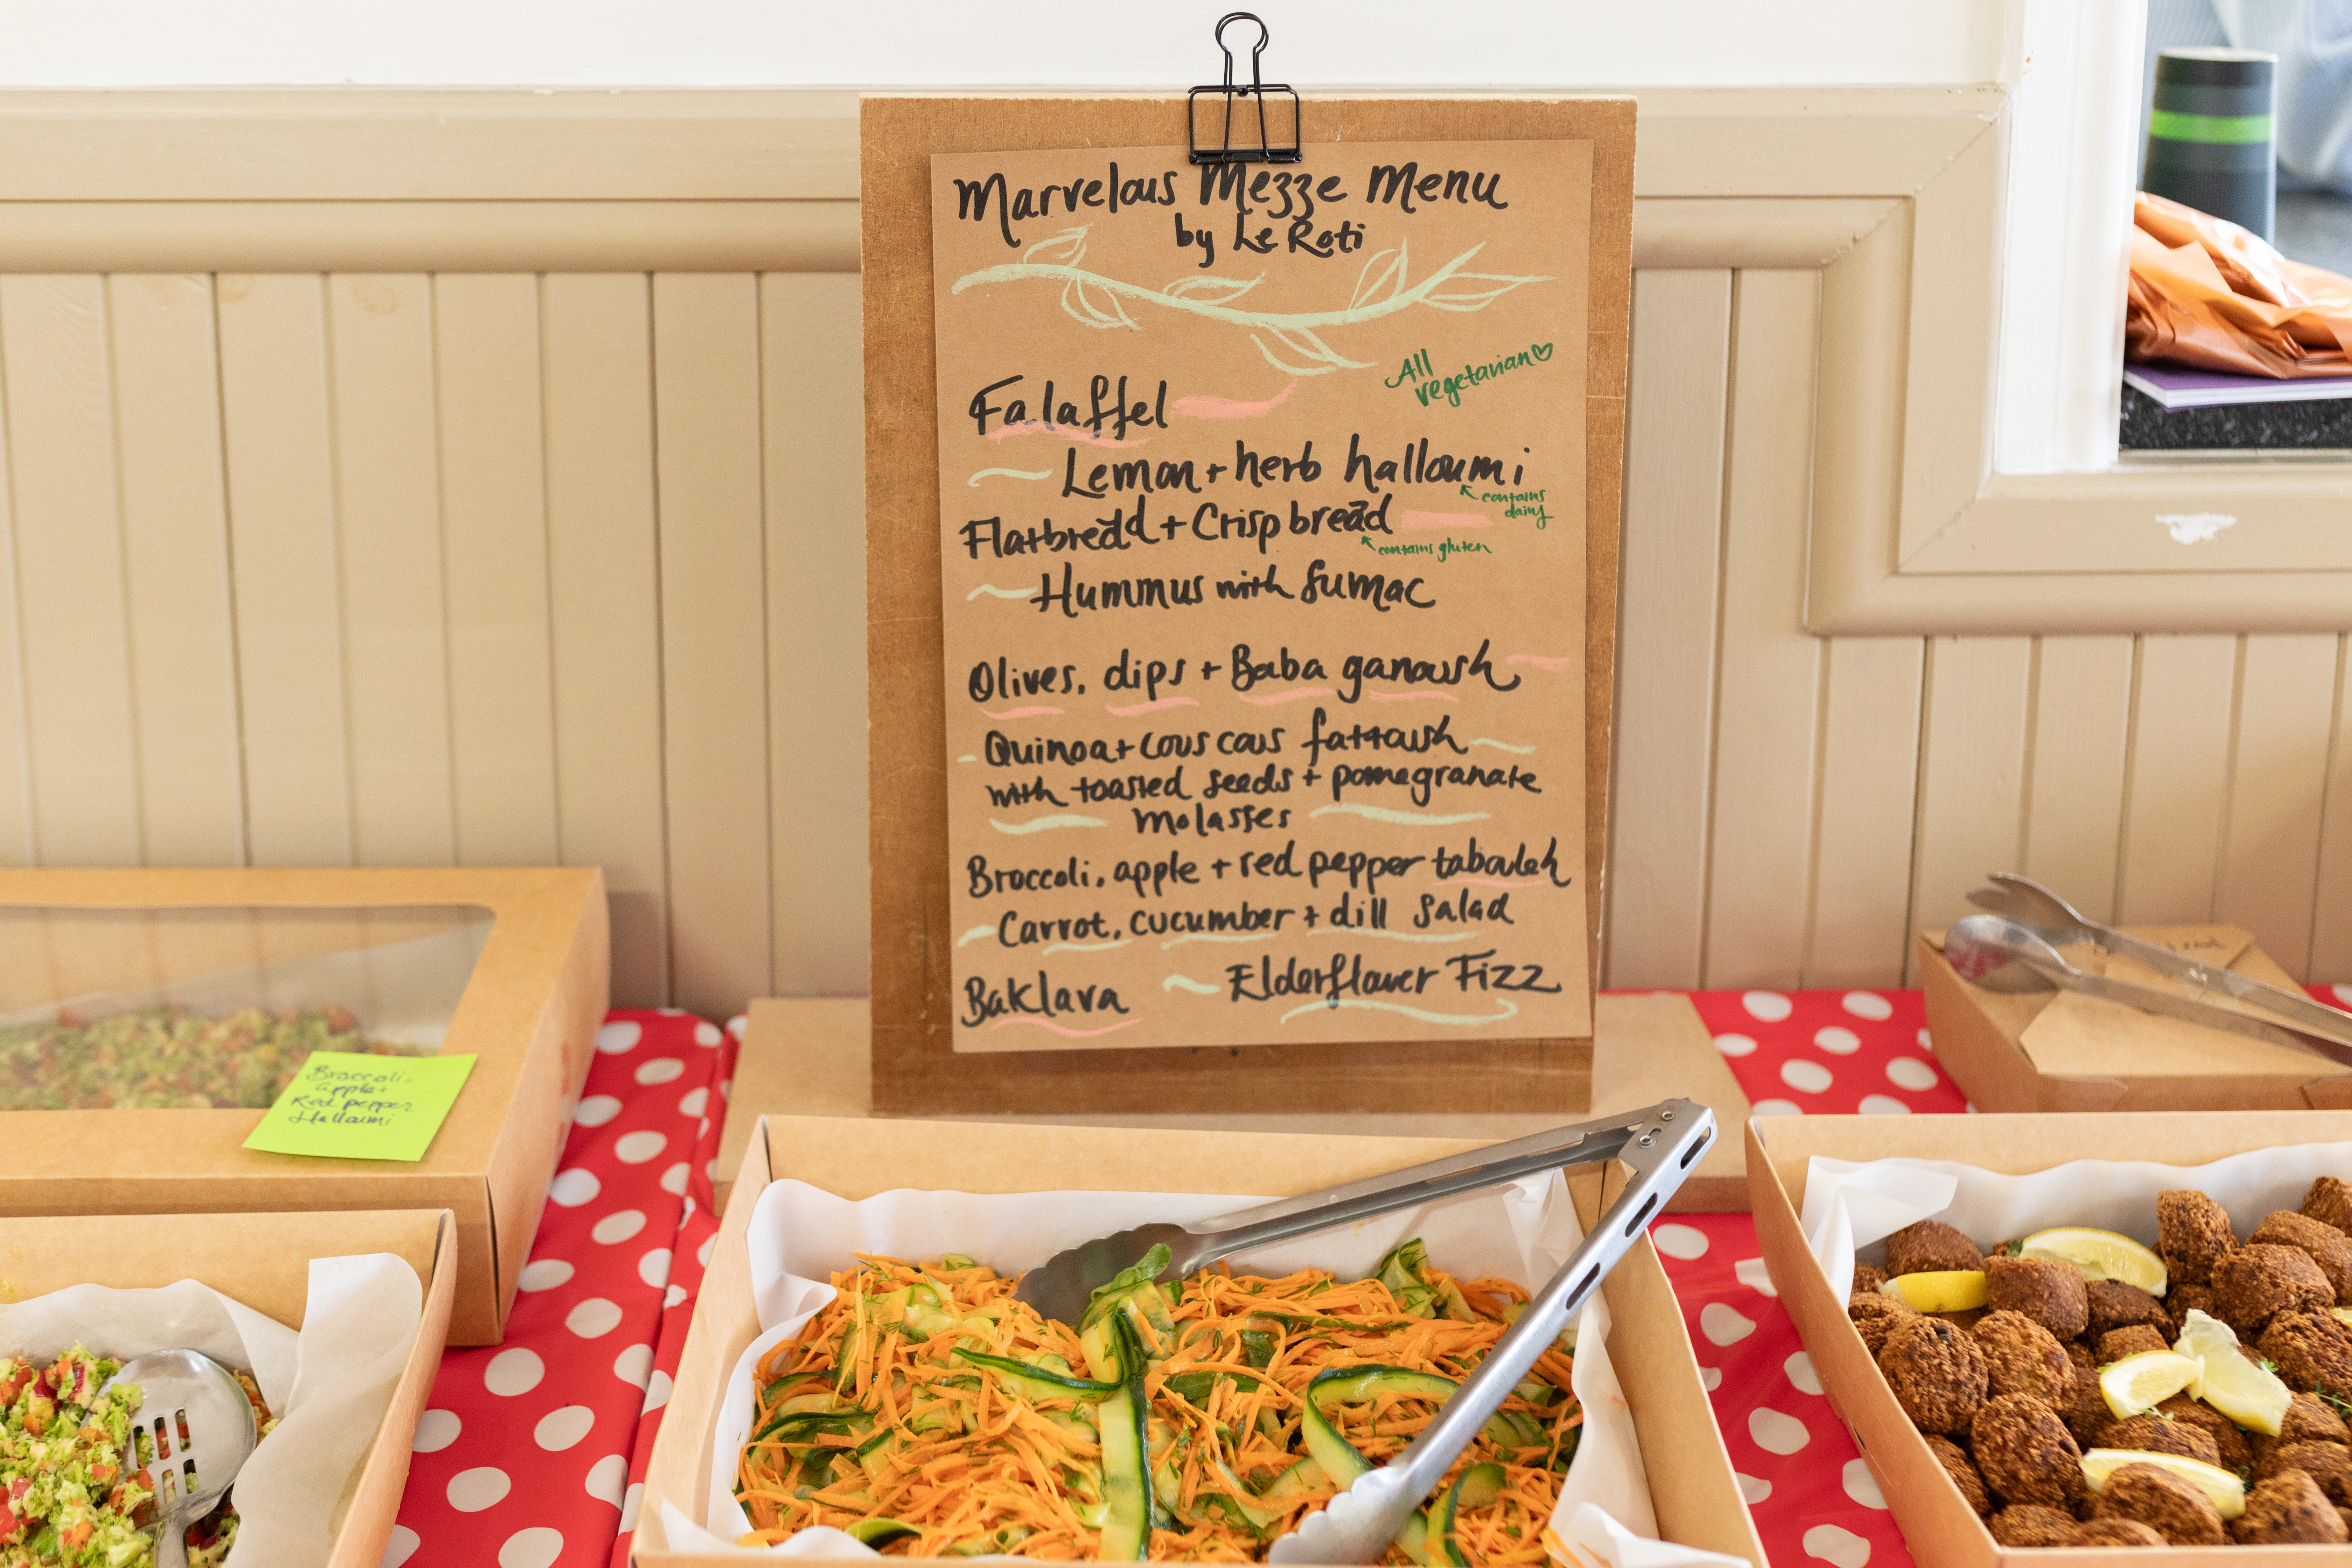 Marvelous Mezze Menu
by Le Roti
All
vegetarian
Falaffel
Lemon + herb halloumi
contains
dairy
Flatbread + Crispbread
contains gluten
Hummus with Sumac
Olives, dips + Baba ganoush
Quinoa + cous cous fattoush
with toasted seeds + pomegranate
molasses
Broccoli, apple + red pepper tabouleh
Carrot, cucumber + dill salad
Baklava
Elderflower Fizz
Broccoli,
apple +
Red pepper
Halloumi